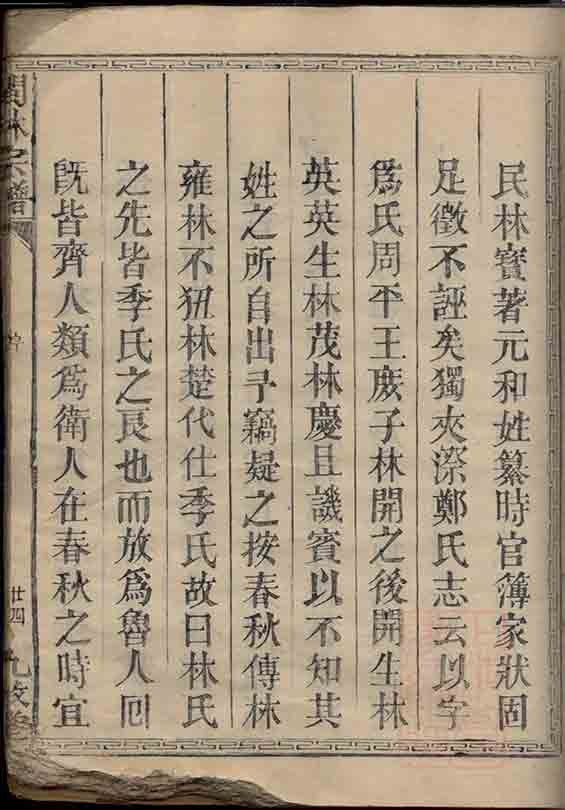 民林寳著元和姓纂時官簿家狀固
足徵不誣矣獨夾漈鄭氏志云以字
爲氏周平王庶子林開之後開生林
英英生林茂林慶且譏賓以不知其
姓之所自出予竊疑之按春秋傳林
雍林不狃林楚代仕季氏故曰林氏
之先皆季氏之良也而放爲魯人回
旣皆齊人類爲衛人在春秋之時宜
林宗譜
廿四